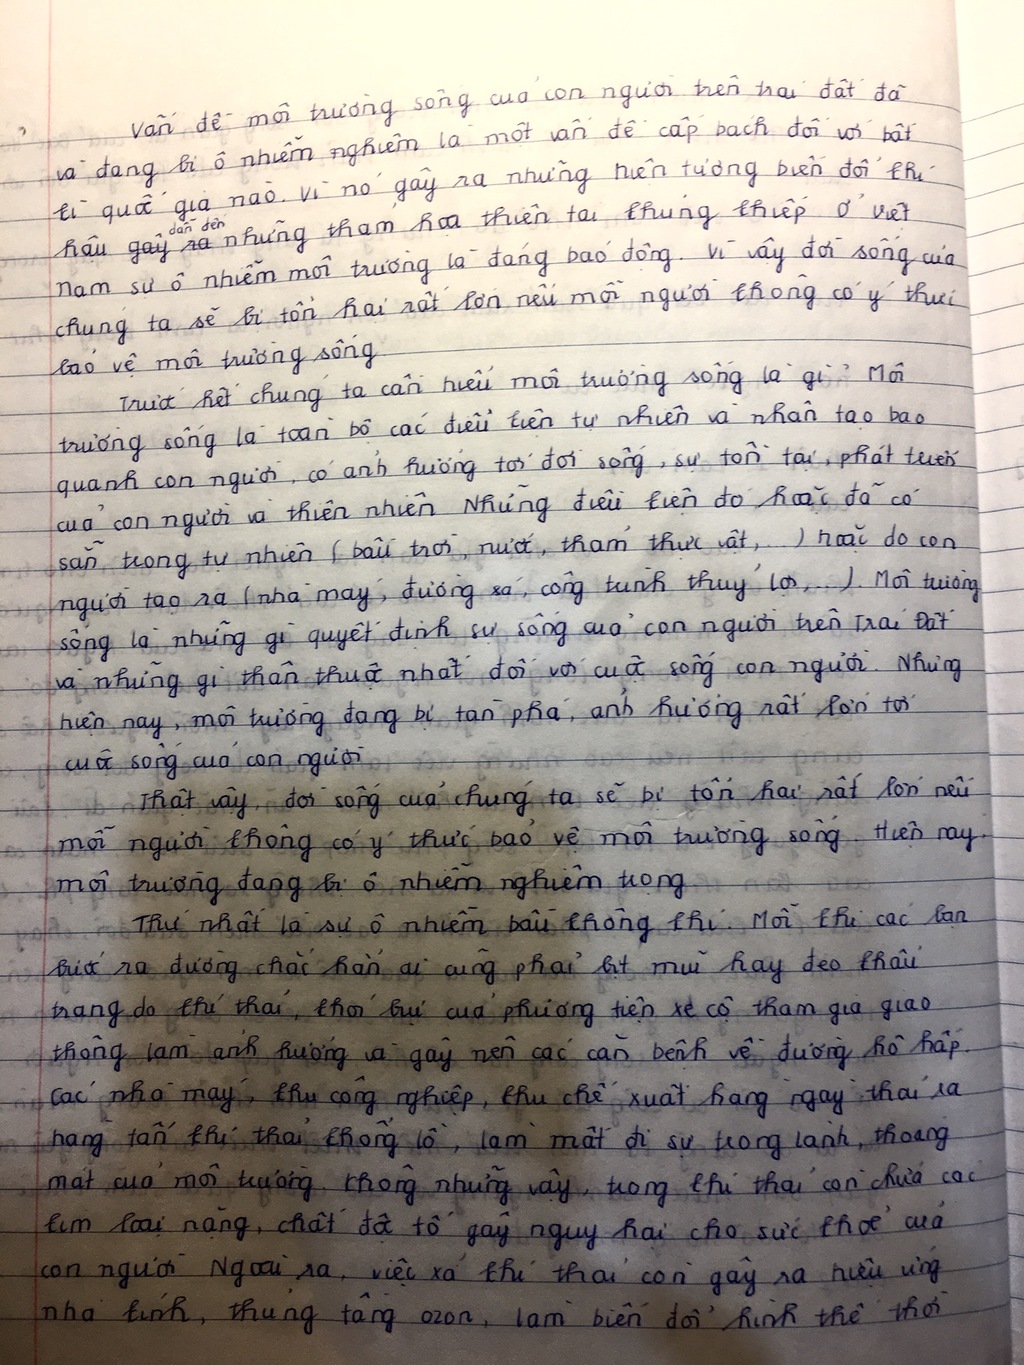 Vấn đề môi trường sống của con người trên trái đất đã
và đang bị ô nhiễm nghiêm là một vấn đề cấp bách đối với bất
kì quốc gia nào. Vì nó gây ra những hiện tượng biến đổi khí
hậu gây ra dẫn đến những thảm họa thiên tai khủng khiếp. Ở Việt
nam sự ô nhiễm môi trường là đáng báo động. Vì vậy đời sống của
chúng ta sẽ bị tổn hại rất lớn nếu mỗi người không có ý thức
bảo vệ môi trường sống
Trước hết chúng ta cần hiểu môi trường sống là gì? Môi
trường sống là toàn bộ các điều kiện tự nhiên và nhân tạo bao
quanh con người, có ảnh hưởng tới đời sống, sự tồn tại, phát triển
của con người và thiên nhiên Những điều kiện đó hoặc đã có
sẵn trong tự nhiên (bầu trời, nước, thảm thực vật,...) hoặc do con
người tạo ra (nhà máy, đường xá, công trình thuỷ lợi,...). Môi trường
sống là những gì quyết định sự sống của con người trên Trái Đất
và những gì thân thuộc nhất đối với cuộc sống con người. Nhưng
hiện nay, môi trường đang bị tàn phá, ảnh hưởng rất lớn tới
cuộc sống của con người
Thật vậy, đời sống của chúng ta sẽ bị tổn hại rất lớn nếu
mỗi người không có ý thức bảo vệ môi trường sống. Hiện nay,
môi trường đang bị ô nhiễm nghiêm trọng
Thứ nhất là sự ô nhiễm bầu không khí. Mỗi khi các bạn
bước ra đường chắc hẳn ai cũng phải bịt mũi hay đeo khẩu
trang do khí thải, khói bụi của phương tiện xe cộ tham gia giao
thông làm ảnh hưởng và gây nên các căn bệnh về đường hô hấp.
Các nhà máy, khu công nghiệp, khu chế xuất hàng ngày thải ra
hàng tấn khí thải khổng lồ, làm mất đi sự trong lành, thoáng
mát của môi trường. Không những vậy, trong khí thải còn chứa các
kim loại nặng, chất độc tố gây nguy hại cho sức khoẻ của
con người Ngoài ra, việc xả khí thải còn gây ra hiệu ứng
nhà kính, thủng tầng ozon, làm biến đổi hình thể thời